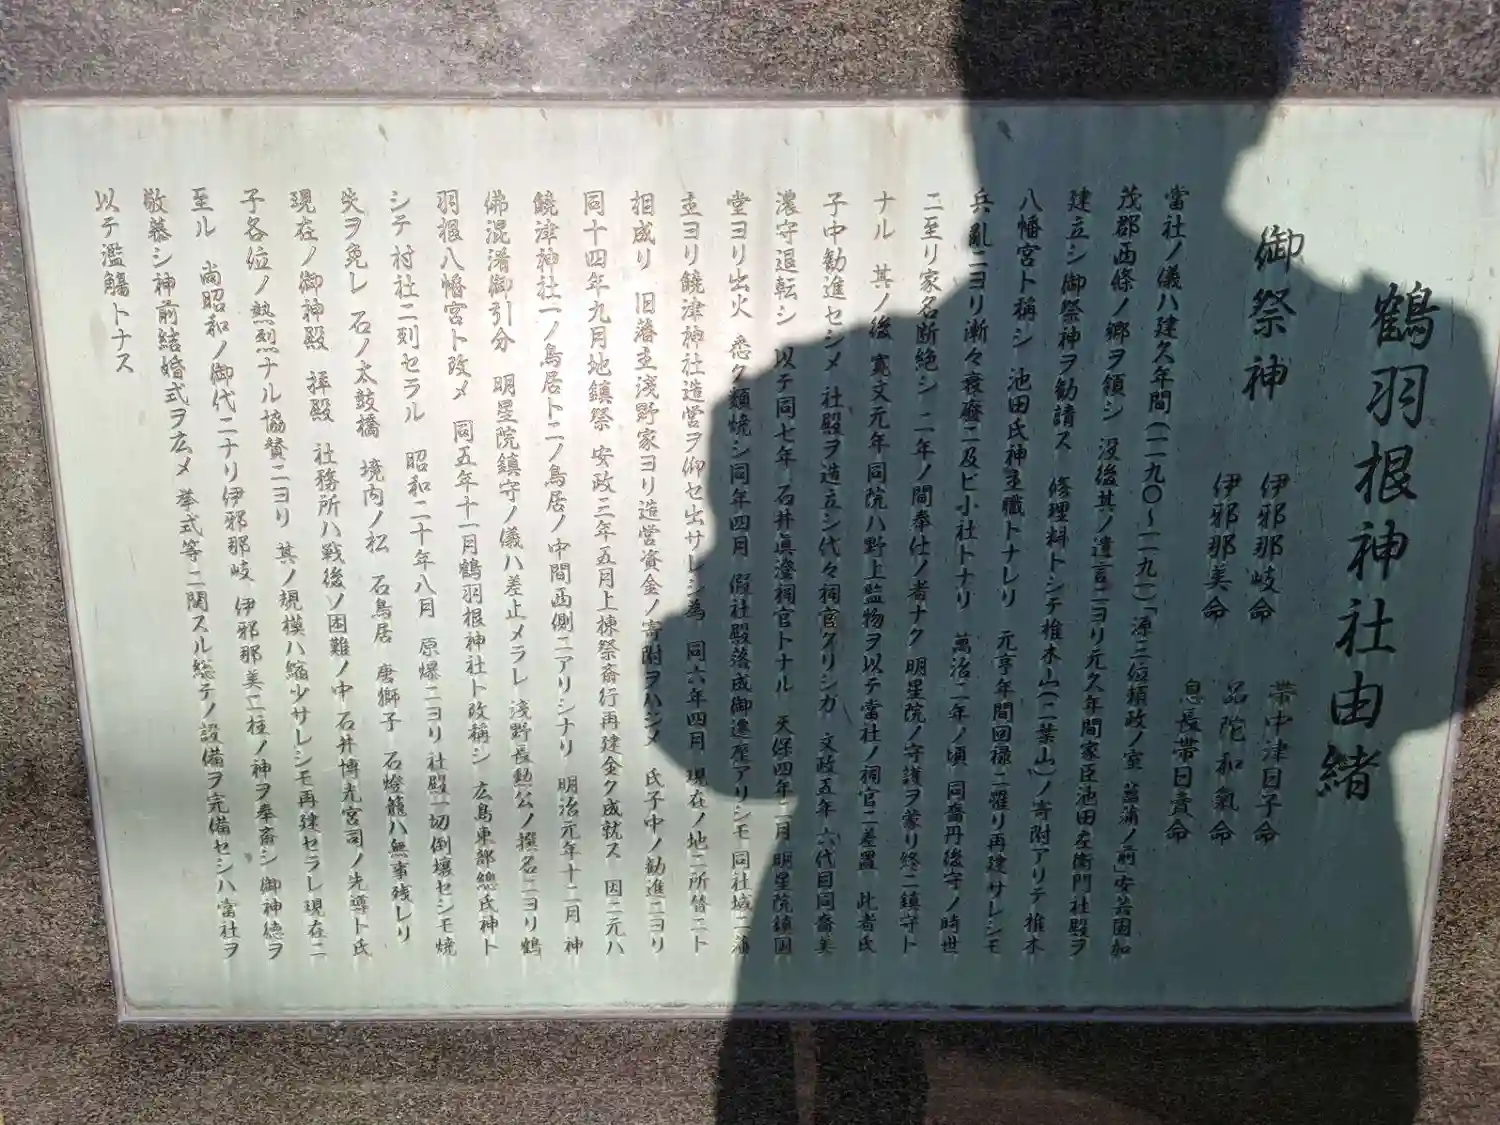 鶴羽根神社由緒
御祭神
伊邪那岐命 帯中津日子命
伊邪那美命 品陀和氣命
息長帯日賣命
當社ノ儀ハ建久年間(一一九〇〜一一九一)「源三位頼政ノ室 菖蒲ノ前」安芸国加
茂郡西條ノ郷ヲ領シ 没後其ノ遺言ニヨリ元久年間家臣池田左衛門社殿ヲ
建立シ御祭神ヲ勧請ス 修理料トシテ椎木山(二葉山)ノ寄附アリテ椎木
八幡宮ト稱シ 池田氏神主職トナレリ 元亨年間回禄ニ罹リ再建サレシモ
兵亂ニヨリ漸々衰廢ニ及ビ小社トナリ 萬治二年ノ頃 同裔丹後守ノ時世
ニ至リ家名断絶シ 二年ノ間奉仕ノ者ナク 明星院ノ守護ヲ蒙リ終ニ鎮守ト
ナル 其ノ後 寛文元年同院ハ野上監物ヲ以テ當社ノ祠官ニ差置 此者氏
子中勧進セシメ 社殿ヲ造立シ代々祠官タリシカ 文政五年 六代目同裔美
濃守退転シ 以テ同七年 石井眞澄祠官トナル 天保四年二月 明星院鎮国
堂ヨリ出火 悉ク類焼シ同年四月 假社殿落成御遷座アリシモ 同社域ニ藩
主ヨリ饒津神社造営ヲ仰セ出サレシ為 同六年四月 現在ノ地ニ所替ニト
相成リ 旧藩主浅野家ヨリ造営資金ノ寄附ヲハジメ 氏子中ノ勧進ニヨリ
同十四年九月地鎮祭 安政三年五月上棟祭斎行再建全ク成就ス 因ニ元ハ
饒津神社一ノ鳥居ト二ノ鳥居ノ中間西側ニアリシナリ 明治元年十二月 神
佛混淆御引分 明星院鎮守ノ儀ハ差止メラレ 浅野長勲公ノ撰名ニヨリ鶴
羽根八幡宮ト改メ 同五年十一月鶴羽根神社ト改稱シ 広島東部總氏神ト
シテ村社ニ列セラル 昭和二十年八月 原爆ニヨリ社殿一切倒壊セシモ焼
失ヲ免レ 石ノ太鼓橋 境内ノ松 石鳥居 唐獅子 石燈籠ハ無事残レリ
現在ノ御神殿 拝殿 社務所ハ戦後ソ困難ノ中 石井博光宮司ノ先導ト氏
子各位ノ熱烈ナル協賛ニヨリ 其ノ規模ハ縮少サレシモ再建セラレ現在ニ
至ル 尚昭和ノ御代ニナリ伊邪那岐 伊邪那美二柱ノ神ヲ奉斎シ 御神徳ヲ
敬慕シ神前結婚式ヲ広メ 挙式等ニ関スル総テノ設備ヲ完備セシハ當社ヲ
以テ濫觴トナス